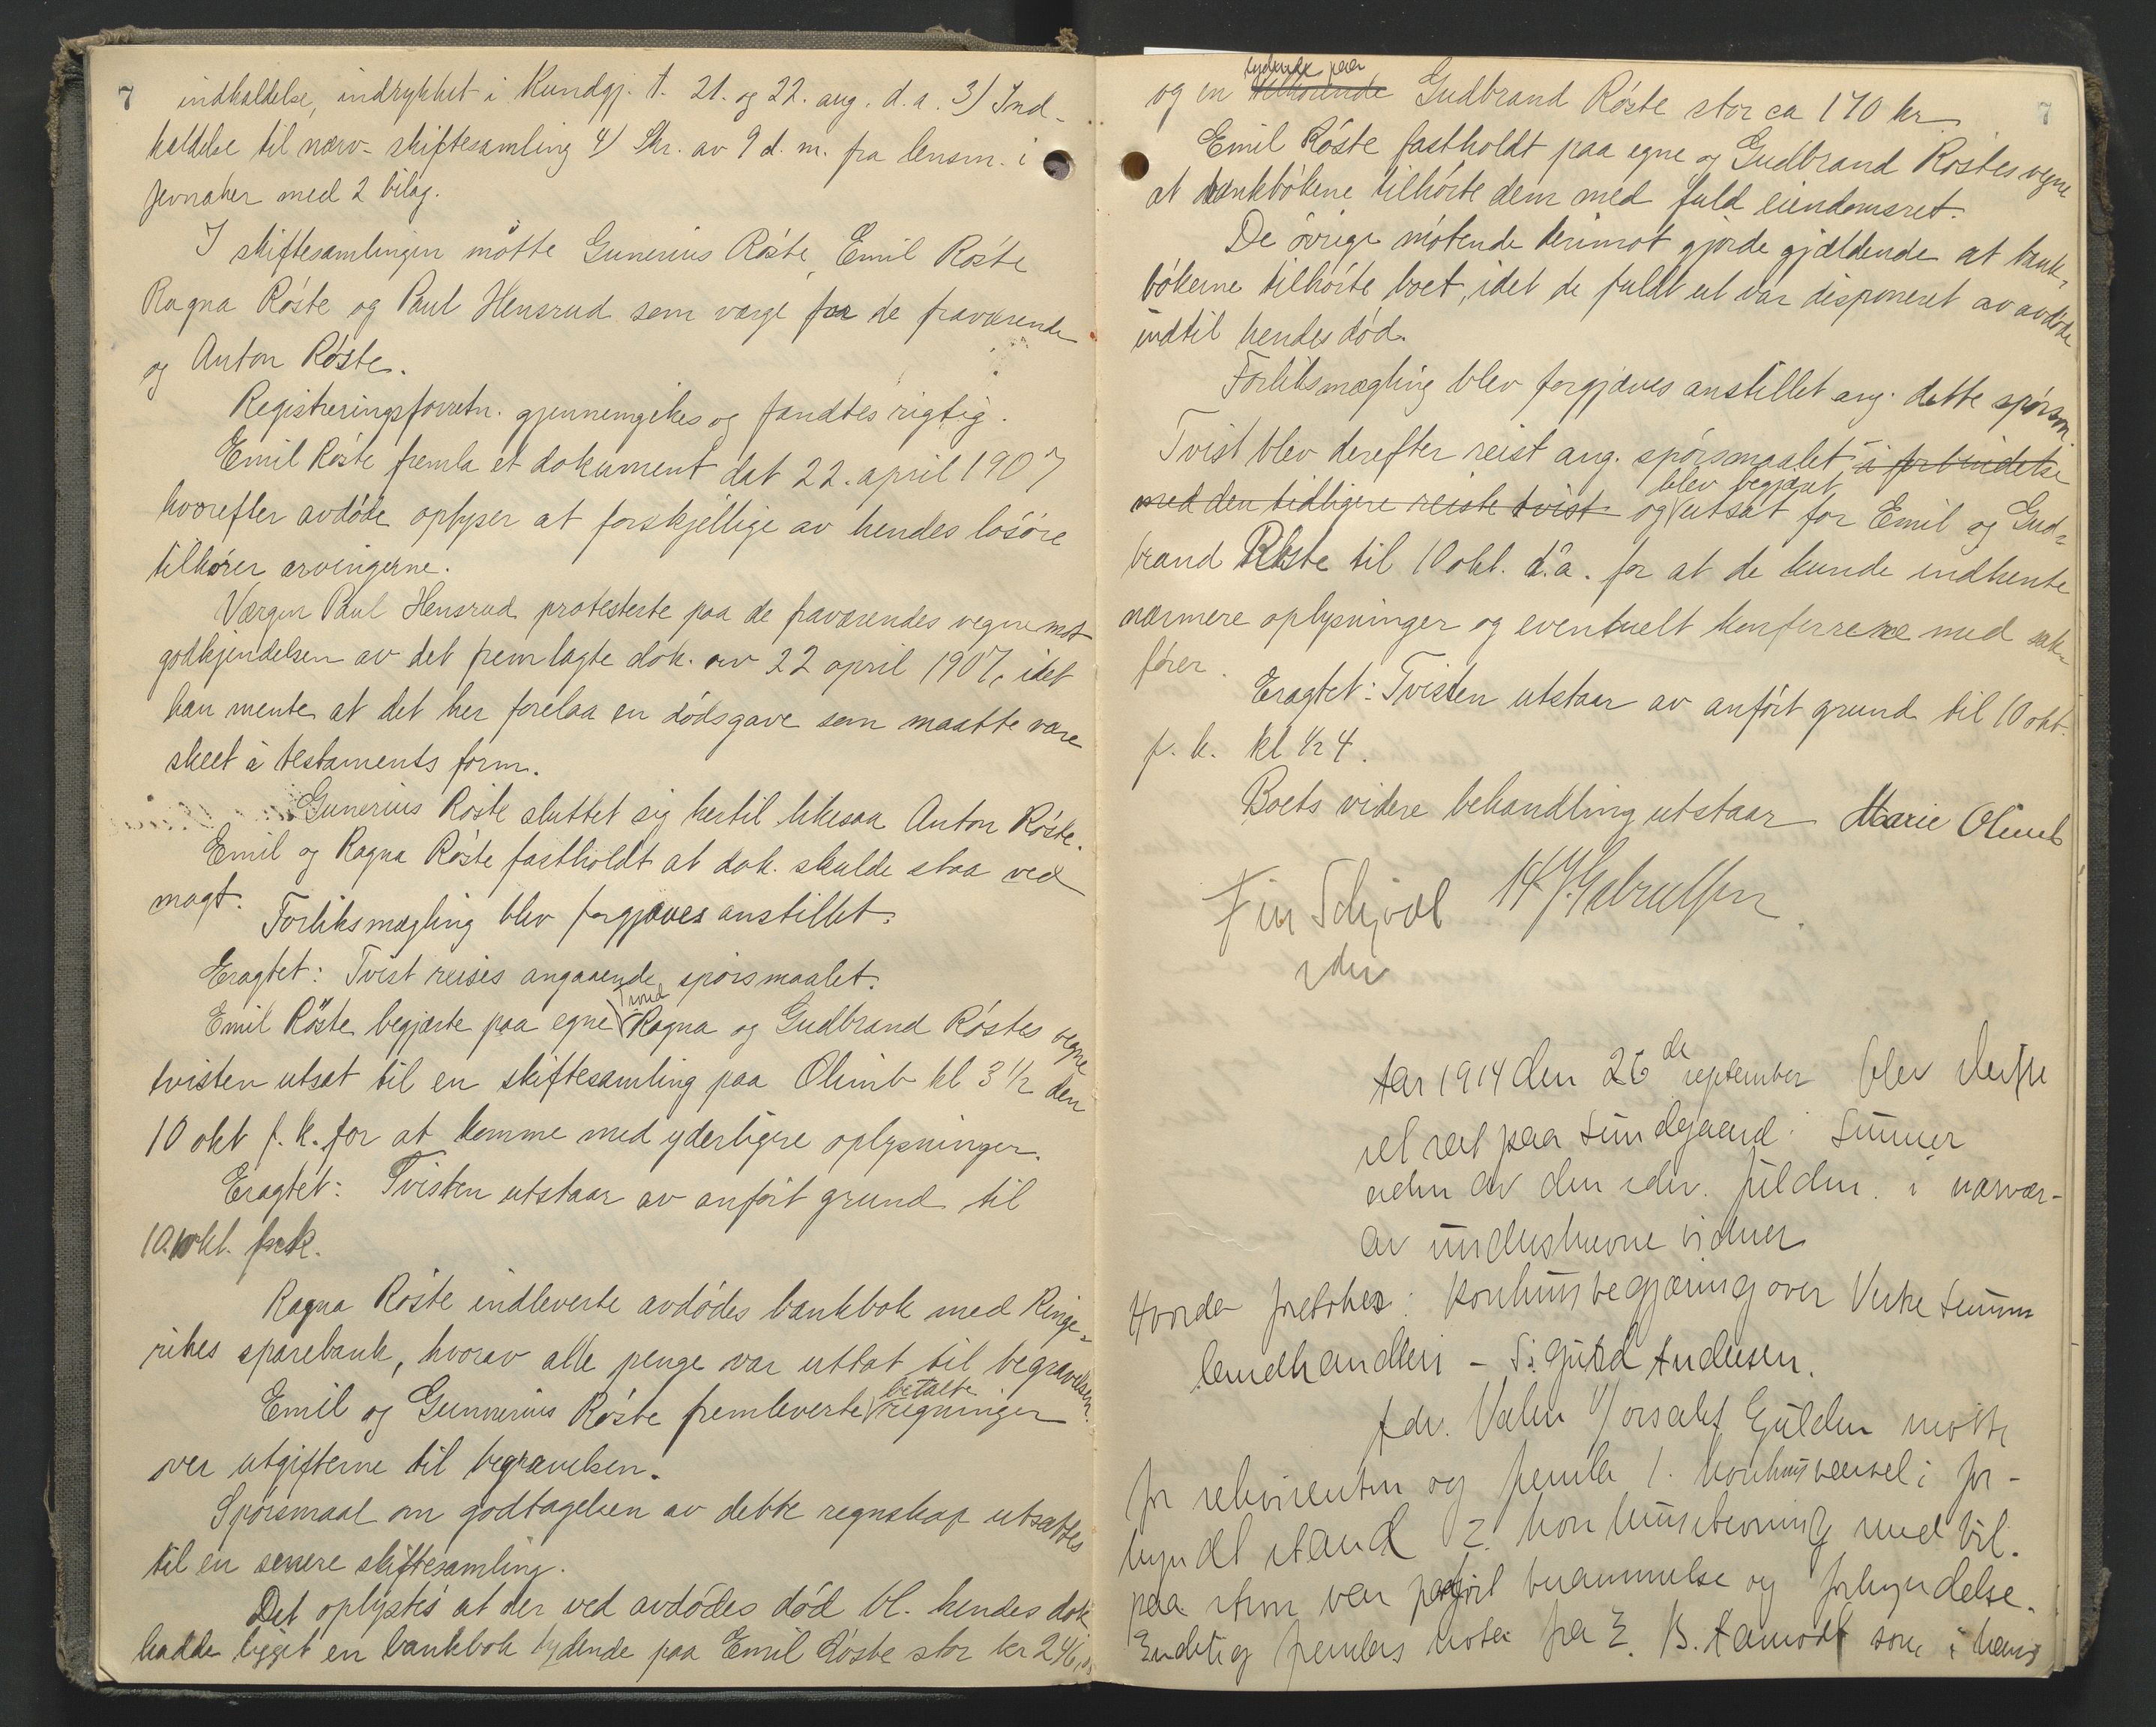 7
indkaldelse, indrykket i Kundgj. t. 21. og 22. aug. d.a. 3) Ind-
kaldelse til nærv. skiftesamling 4) Skr. av 9 d. m. fra lensm. i
Jevnaker med 2 bilag.
I skiftesamlingen mötte Gunerius Röste, Emil Röste
Ragna Röste og Paul Hensrud som værge for de fraværende
og Anton Röste.
Registreringsforretn. gjennemgikes og fandtes rigtig.
Emil Röste fremla et dokument dat 22. april 1907
hvorefter avdöde oplyser at forskjellige av hendes lösöre
tilhörer arvingerne.
Værgen Paul Hensrud protesterte paa de fraværendes vegne mot
godkjendelsen av det fremlagte dok. av 22 april 1907, idet
han mente at det her forelaa en dödsgave som maatte være
skeet i testaments form.
Gunerius Röste sluttet sig hertil likesaa Anton Röste.
Emil og Ragna Röste fastholdt at dok. skulde staa ved
magt.
Forliksmægling blev forgjæves anstillet.
Eragtet: Tvist reises angaaende spörsmaalet.
Emil Röste begjærte paa egne Ragna og Gudbrand Röstes vegne
tvisten utsat til en skiftesamling paa Olimb kl 3 1/2 den
10 okt f. k. for at komme med yderligere oplysninger.
Eragtet: Tvisten utstaar av anfört grund til
10. okt. førstk.
Ragna Röste indleverte avdödes bankbok med Ringe-
rikes sparebank, hvorav alle penge var uttat til begravelsen.
Emil og Gunnerius Röste fremleverte betalte regninger
over utgifterne til begravelsen.
Spörsmaal om godtagelsen av dette regnskap utsattes
til en senere skiftesamling.
Det oplystes at der ved avdödes död bl. hendes dok
hadde ligget en bankbok lydende paa Emil Röste stor kr 246,
7
lydende paa
og en tilhörende Gudbrand Röste stor ca 170 kr
Emil Röste fastholdt paa egne og Gudbrand Röstes vegne
at bankbökene tilhörte dem med fuld eiendomsret.
De övrige mötende derimot gjorde gjældende at bank-
bökerne tilhörte boet, idet de fuldt ut var disponeret av avdöde
indtil hendes död.
Forliksmægling blev forgjæves anstillet ang. dette spörsm.
Tvist blev derefter reist ang. spörsmaalet i forbindelse
med den tidligere reiste tvist og blev begjæret utsat for Emil og Gud-
brand Röste til 10 okt. d. a. for at de kunde indhente
nærmere oplysninger og eventuelt konferrere med sak-
förer.
Eragtet: Tvisten utstaar av anfört grund til 10 okt.
f. k. kl 1/2 4.
Boets videre behandling utstaar Marie Olimb
Fin Schjöll
edv
Aar 1914 den 26de september blev skifte
ret sat paa Sundgaard i Sunner
av den edv. fuldm. i nærvær-
av underskrevne vidner
Hvorda foretokes: Konkursbegjæring over
landhandleri - Sigurd Andersen.
Adv. Gulden mötte
for rekvirenten og fremla 1. i for-
kyndt stand 2. med bil.
paa som var paafört berammelse og forkyndelse.
Endelig fremlas fra E. B. Aamodt som i hans